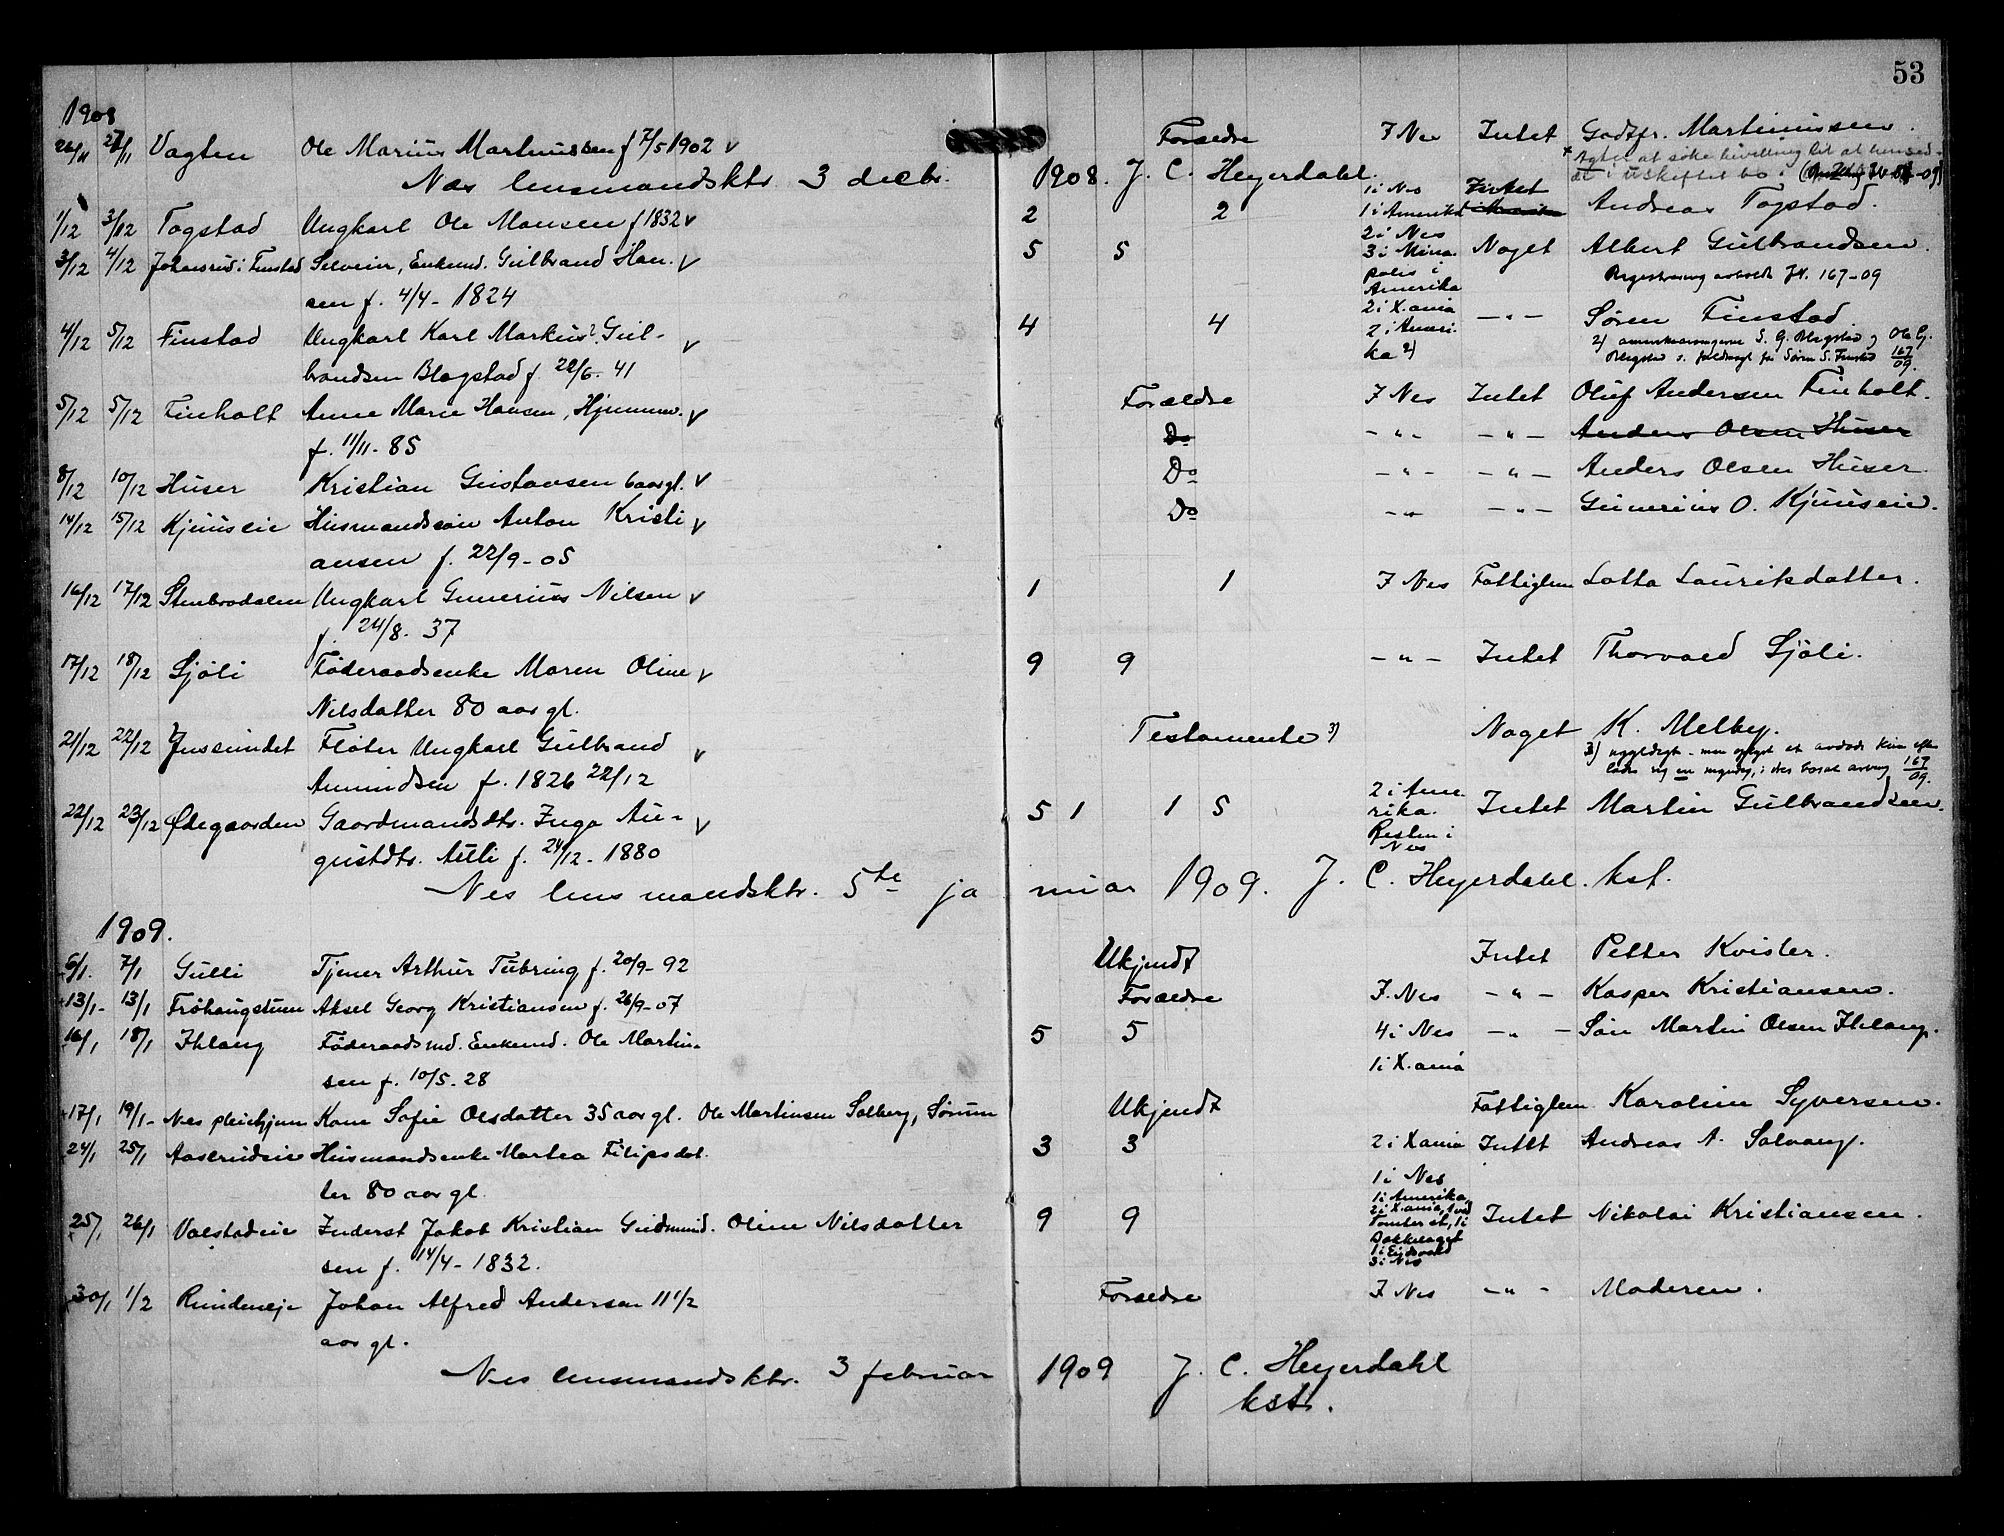 53
1908
26/11 27/11 Vagten Ole Marius Martinussen f 7/5 1902 v Forældre I Nes Intet Godtfr. Martinussen.
Nes lensmandsktr. 3 decbr. 1908. J. C. Heyerdahl.
1/12 3/12 Togstad Ungkarl Ole Monsen f 1832 v 2 2 1 i Nes 1 i Amerika Andreas Togstad.
3/12 4/12 Johansrud i Finstad Selveier, Enkemd. Gulbrand Han- v 5 5 2 i Nes Noget Albert Gulbrandsen.
sen f. 4/4 - 1824 3 i Minapolis i Amerika 167-09
4/12 5/12 Finstad Ungkarl Karl Markus? Gul- v 4 4 2 i X.ania 2 i Ameri- — " — Søren Finstad
brandsen Blegstad f. 22/6. 41 ka 2) 167/09.
5/12 5/12 Finholt Anne Marie Hansen, Hjemmev. v Forældre I Nes Intet Oluf Andersen Finholt.
f. 11/11. 85 Do - " - - " - Anders Olsen Huser
8/12 10/12 Huser Kristian Gustavsen 6 aar gl. v Do - " - - " - Anders Olsen Huser.
14/12 15/12 Kjuuseie Husmandssøn Anton Kristi v Do - " - - " - Gunerius O. Kjuuseie.
ansen f. 22/9 - 05
16/12 17/12 Stenbrodalen Ungkarl Gunerius Nilsen v 1 1 I Nes Fattiglem Lotta Lauritsdatter.
f. 24/8. 37
17/12 18/12 Sjøli Føderaadsenke Maren Oline v 9 9 - " - Intet Thorvald Sjøli.
Nilsdatter 80 aar gl.
21/12 22/12 Jussundet Fløter Ungkarl Gulbrand v Testamente 3) Noget K. Melby.
Amundsen f. 1826 22/12 167/09.
22/12 23/12 Ødegaarden Gaardmandsdtr. Inga Au- v 5 1 1 5 2 i Amerika. Resten i Nes Intet Martin Gulbrandsen.
gustdtr. Auli f. 24/12 - 1880
Nes lensmandsktr. 5te januar 1909. J. C. Heyerdahl. kst.
1909.
6/1. 7/1 Gulli Tjener Arthur Tubring f. 20/9 - 92 Ukjendt Intet Petter Kvisler.
13/1 - 13/1 Frøhaugstuen Aksel Georg Kristiansen f. 26/9 - 07 Forældre I Nes - " - Kasper Kristiansen.
16/1 18/1 Ihlang Føderaadsmd. Enkemd. Ole Martin- 5 5 4 i Nes - " - Søn Martin Olsen Ihlang.
sen f. 10/5 - 28 1 i X.ania
17/1 19/1 - Nes pleiehjem Kone Sofie Olsdatter 35 aar gl. Ole Martinsen Solberg, Sørum Ukjendt Fattiglem Karoline Syversen.
24/1 25/1 Aaserudeie Husmandsenke Martea Filipsdat- 3 3 2 i Xania Intet Andreas A. Solvang.
ter 80 aar gl. 1 i Nes
25/1 26/1 Valstadeie Inderst Jakob Kristian Gudmund- Oline Nilsdatter 9 9 1 i Amerika, 2 i Xania, 1 ved Tomter st, 1 i Bakkelaget 1 i Eidsvold 3 i Nes Intet Nikolai Kristiansen.
sen f. 14/4 - 1832.
30/1 1/2 Rundeneje Johan Alfred Andersen 11 1/2 Forældre I Nes - " - Moderen.
aar gl.
Nes lensmandsktr. 3 februar 1909 J. C. Heyerdahl
kst.